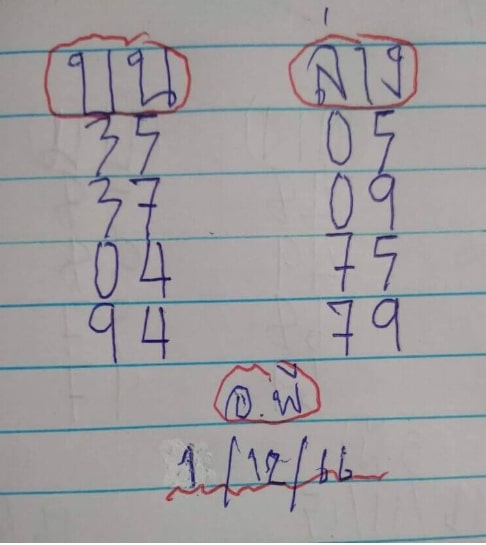 บน ล่าง
35 05
37 09
04 75
94 79
1/12/66